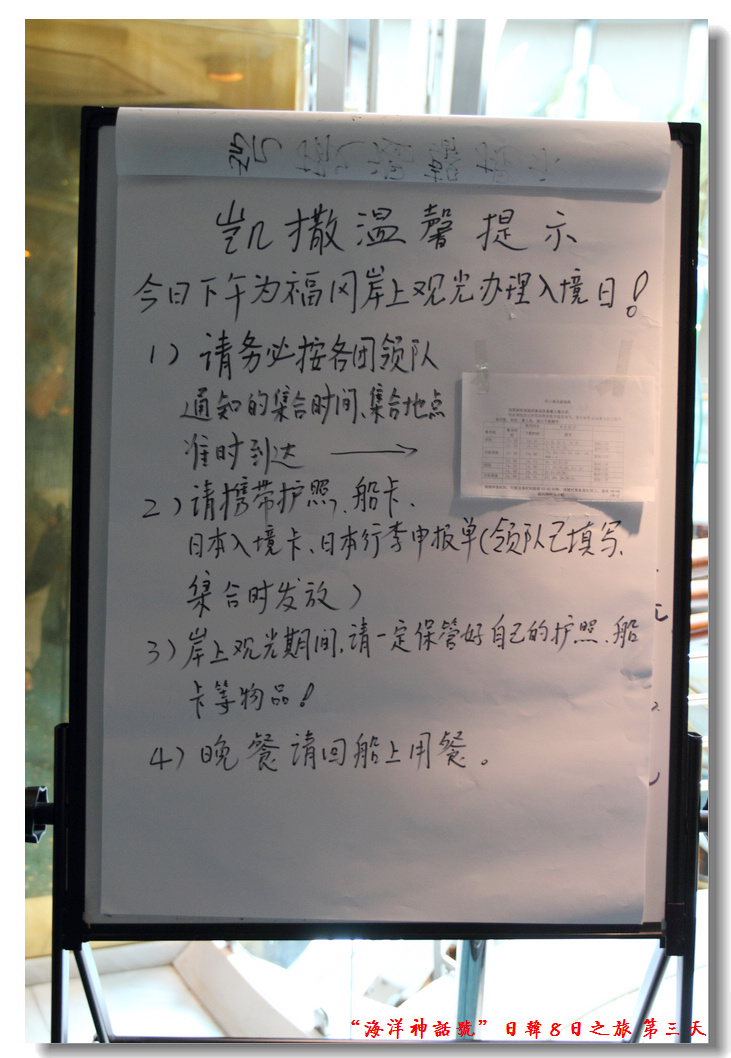 凯撒温馨提示
今日下午为福冈岸上观光办理入境日!
1)请务必按各团领队
通知的集合时间、集合地点
准时到达 →
2)请携带护照、船卡、
日本入境卡、日本行李申报单(领队已填写、
集合时发放)
3)岸上观光期间,请一定保管好自己的护照、船
卡等物品!
4)晚餐请回船上用餐。
“海洋神話號”日韓8日之旅 第三天